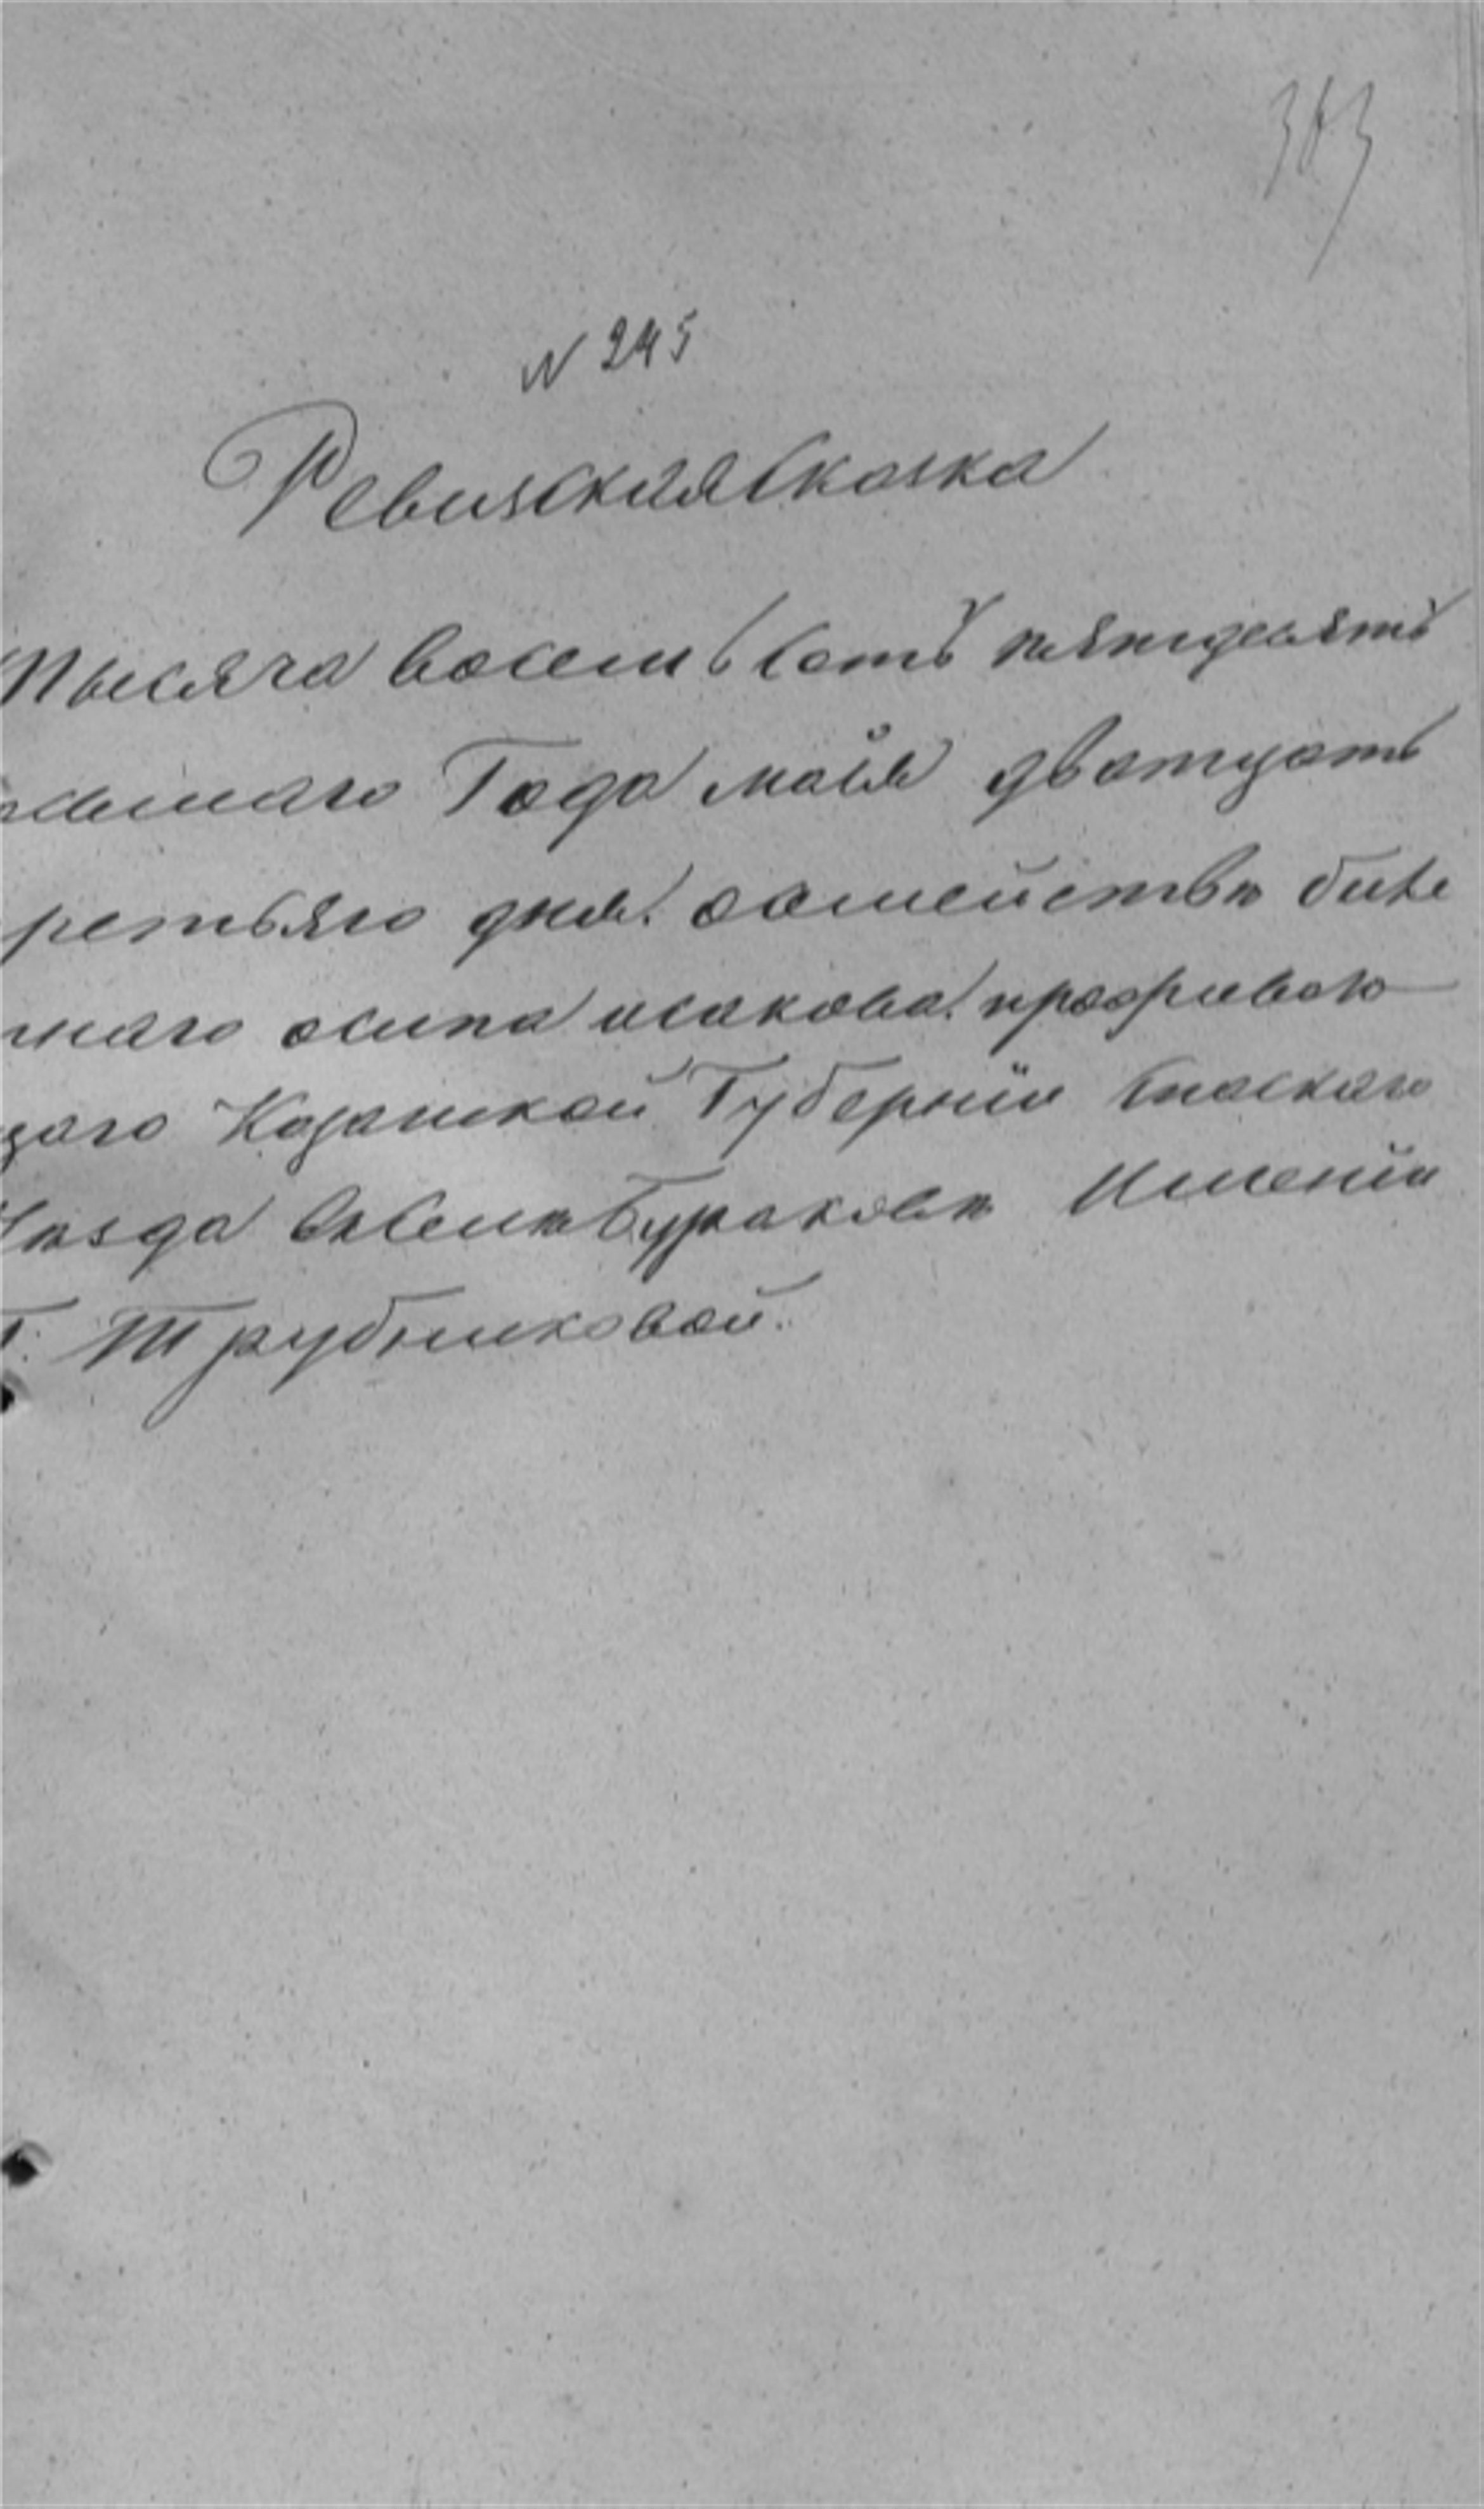 383
N 245
Ревизская Сказка
Тысяча восемь сотъ пятидесять
осьмаго Года маія дватцать
ретьяго дня. осемействѣ биле
тнаго осипа исакова. проживаю
щаго Казанской Губерніи Спаскаго
Уѣзда ВСелѣ Бураковѣ Имѣніи
Г. Трубниковой.